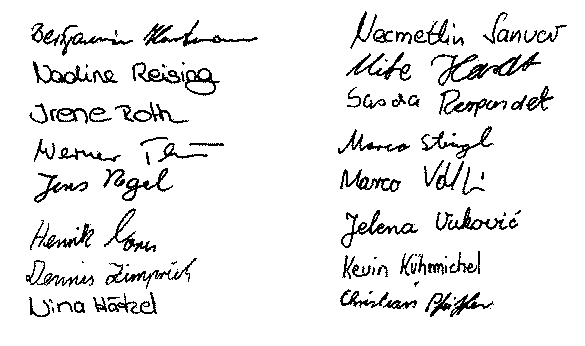 Benjamin Hartmann
Nadine Reising
Irene Roth
Werner
Jens Nagel
Henrik
Dennis Zimprich
Nina Hätzel
Necmettin Sanuav
Mike Hardt
Sascia Respondek
Marco Stingl
Marco
Jelena Vuković
Kevin Kührmichel
Christian Pfeiffer